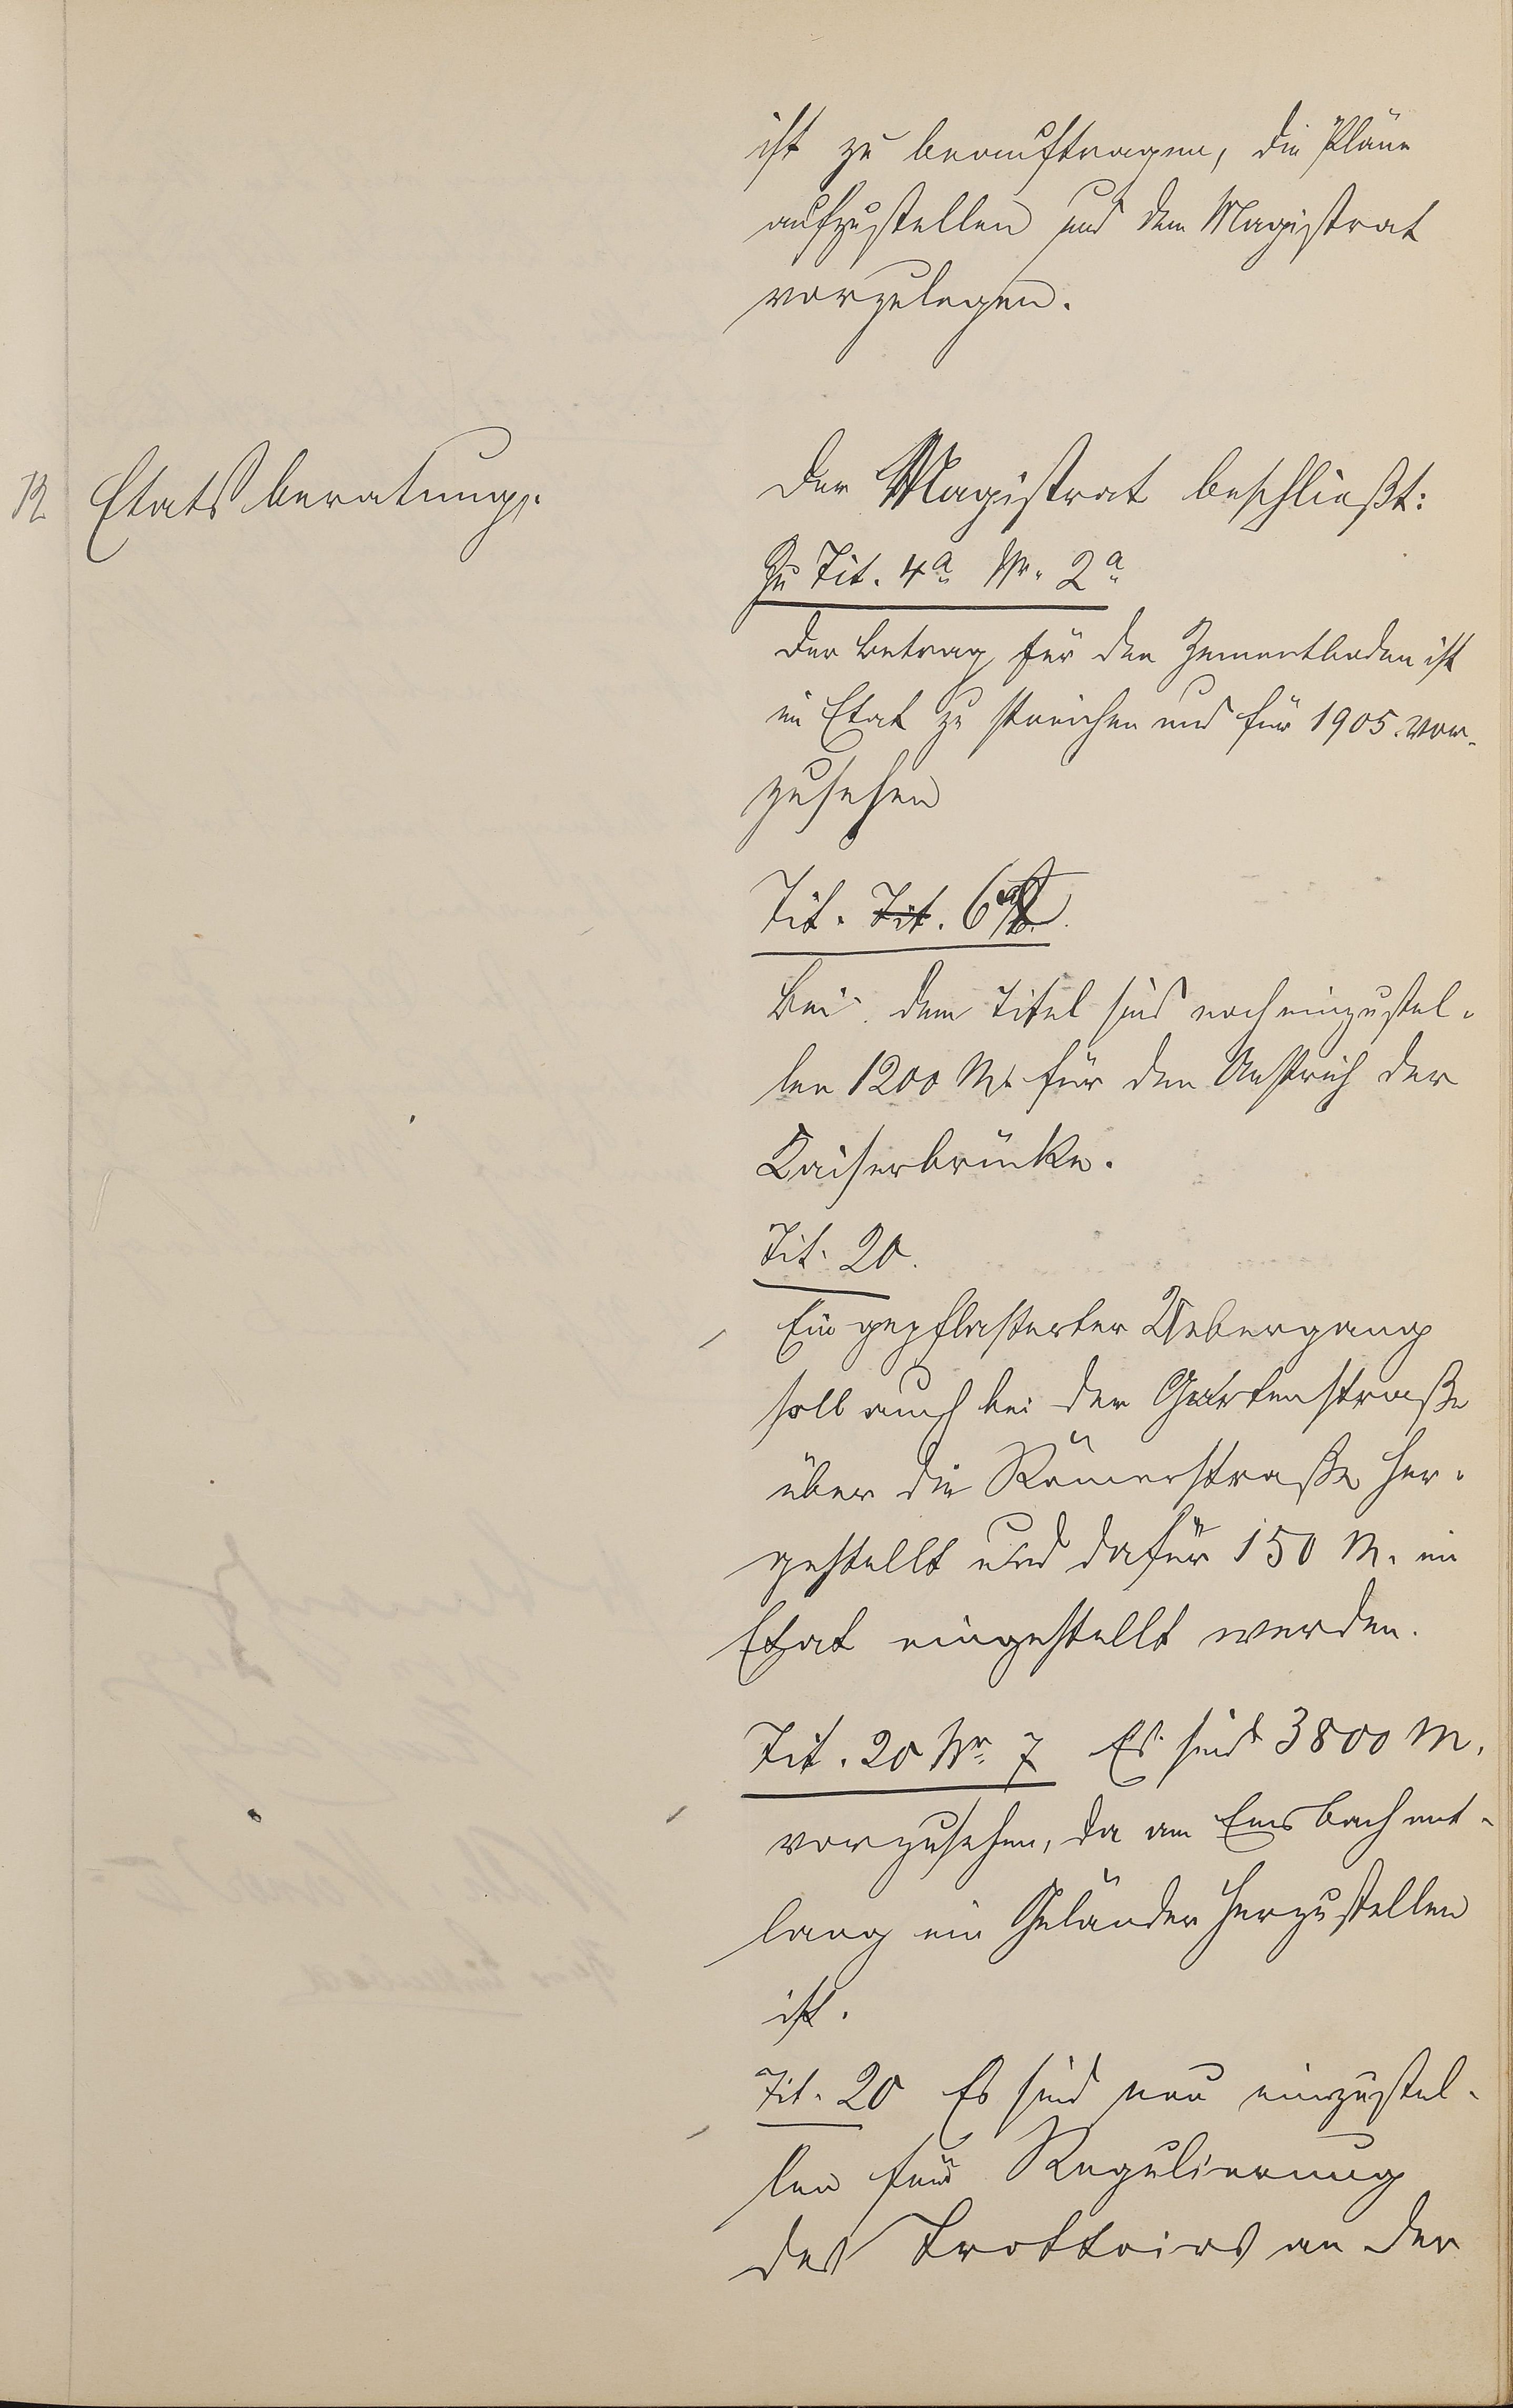 ist zu beauftragen, die Pläne
aufzustellen und dem Magistrat
vorzulegen.
12 Etatsberatung.
Der Magistrat beschließt:
Zu Tit. 4a Nr. 2a
Der Betrag für den Zementboden ist
im Etat zu streichen und für 1905 vor-
zusehen
Tit. Tit. 6a
Bei dem Titel sind noch einzustel-
len 1200 M. für den Anstrich der
Kaiserbrücke.
Tit. 20.
Ein gepflasterter Uebergang
soll auch bei der Gartenstraße
über die Römerstraße her-
gestellt und dafür 150 M. im
Etat eingestellt werden.
Tit. 20 Nr. 7 Es sind 3800 M.
vorzusehen, da am Emsbach ent-
lang ein Geländer herzustellen
ist.
Tit. 20 Es sind neu einzustel-
len für Regulierung
des Trottoirs an der